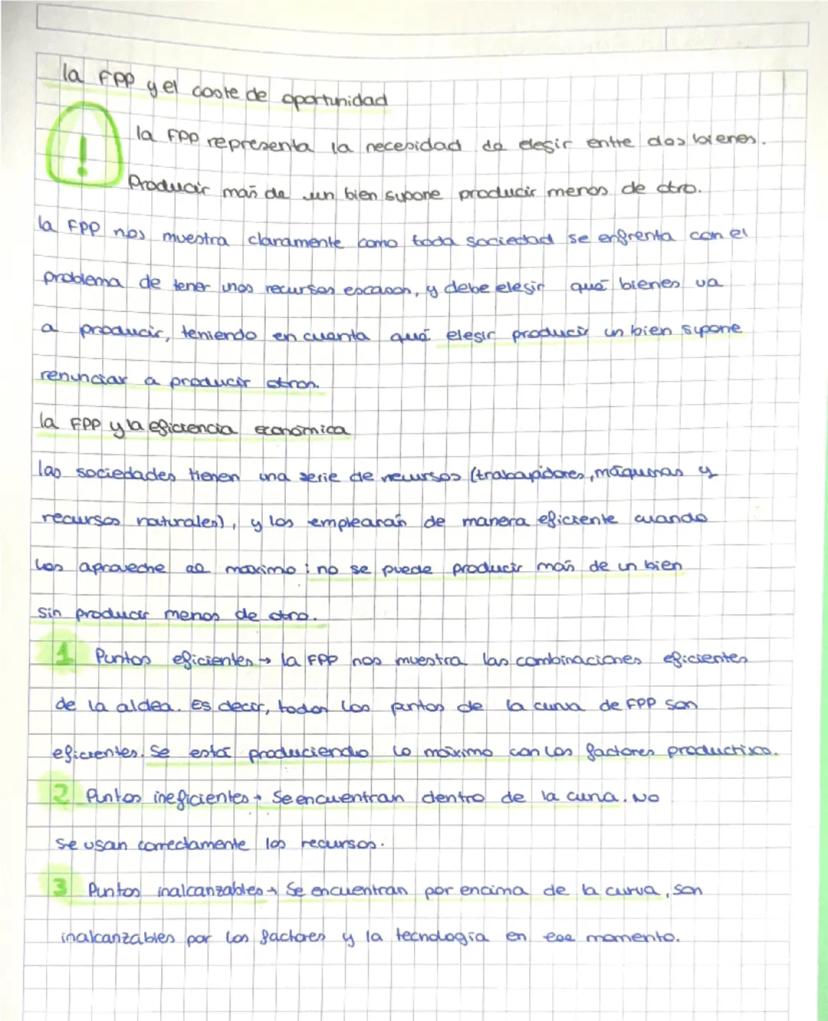 la FPP y el coste de oportunidad
!
la FPP representa la necesidad de elegir entre dos bienes.
Producir más de un bien supone producir menos de otro.
la FPP nos muestra claramente como toda sociedad se enfrenta con el
problema de tener unos recursos escasos, y debe elegir qué bienes va
a producir, teniendo en cuanta qué elegir producir un bien supone
renunciar a producir otros.
la FPP y la eficiencia económica
las sociedades tienen una serie de recursos (trabajadores, máquinas y
recursos naturales), y los emplearán de manera eficiente cuando
los aproveche al maximo: no se puede producir más de un bien
sin producir menos de otro.
1 Puntos eficientes → la FPP nos muestra las combinaciones eficientes
de la aldea. Es decir, todos los puntos de la curva de FPP son
eficientes. Se está produciendo lo máximo con los factores productivo.
2 Puntos ineficientes → Se encuentran dentro de la curva. No
se usan correctamente los recursos.
3 Puntos inalcanzables → Se encuentran por encima de la curva, son
inalcanzables por los factores y la tecnología en ese momento.